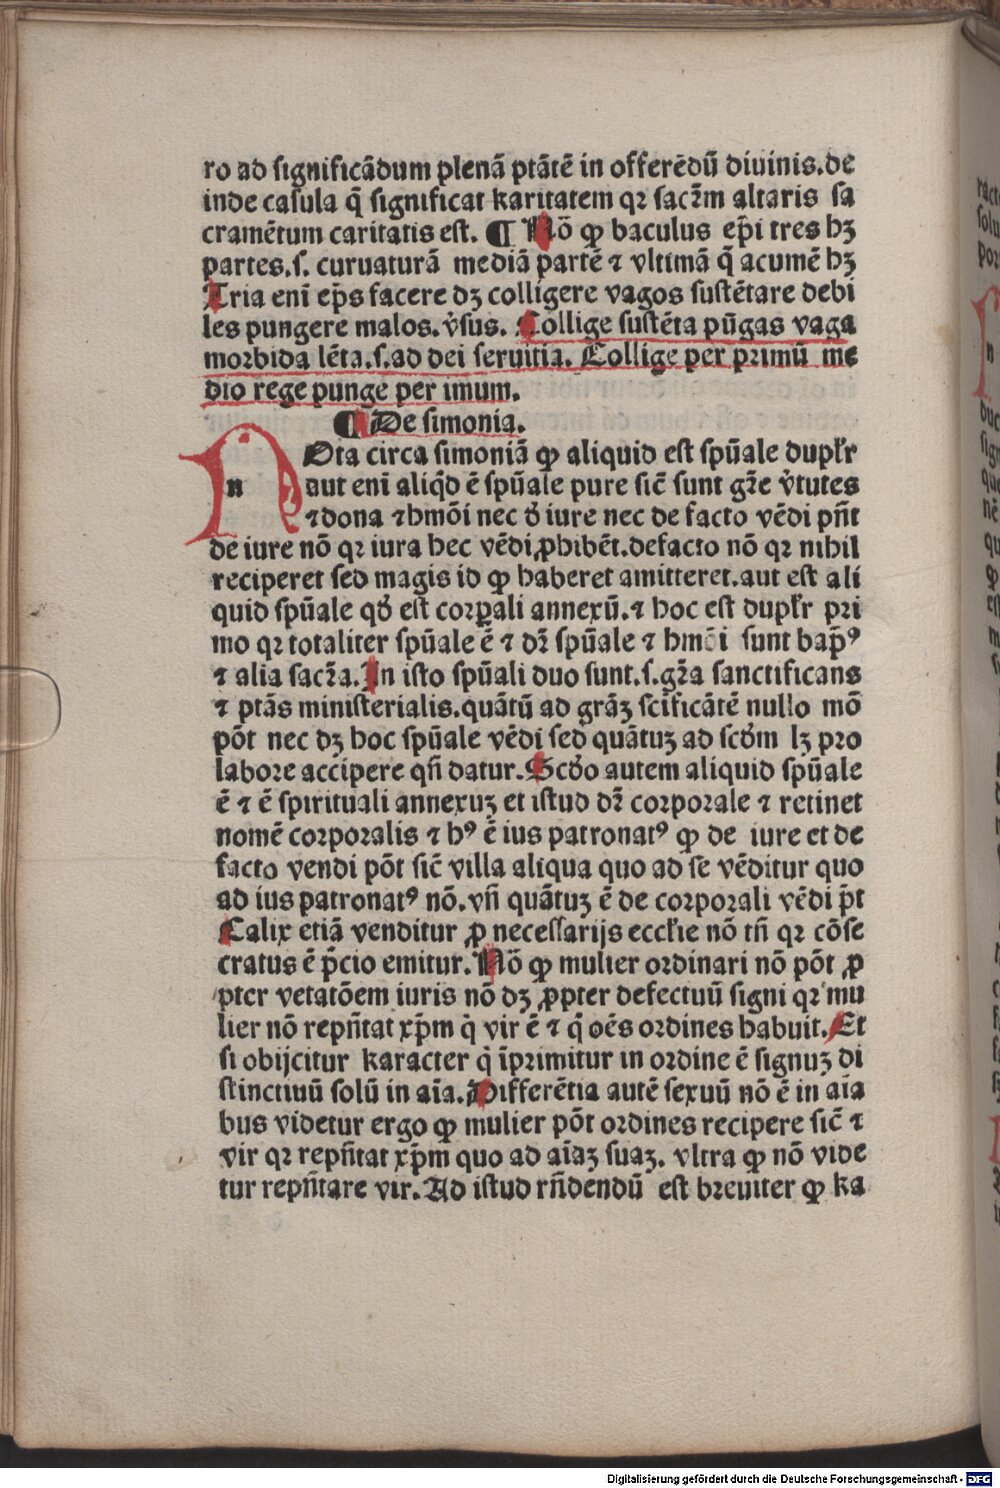 ro ad significādum plenā ptātē in offerēdū diuinis.de
inde casula q̄ significat karitatem qꝛ sacr̄m altaris sa
cramētum caritatis est. ¶ Nō ꝙ baculus ep̄i tres hꝫ
partes.s. curuaturā mediā partē ⁊ vltimā q̄ acumē hꝫ
Tria eni ep̄s facere dꝫ colligere vagos sustētare debi
les pungere malos. v̄sus. Collige sustēta pūgas vaga
morbida lēta.s.ad dei seruitia. Collige per primū me
dio rege punge per imum.
¶ De simonia.
n Ota circa simoniā ꝙ aliquid est spūale duplr̄
aut eni aliq̄d ē spūale pure sic̄ sunt gr̄e v̄tutes
⁊ dona ⁊ hmōi nec d̄ iure nec de facto vēdi pn̄t
de iure nō qꝛ iura hec vēdi ꝓhibēt.defacto nō qꝛ nihil
reciperet sed magis id ꝙ haberet amitteret.aut est ali
quid spūale qd̄ est corꝑali annexū.⁊ hoc est duplr̄ pri
mo qꝛ totaliter spūale ē ⁊ dr̄ spūale ⁊ hmōi sunt bap̄ꝰ
⁊ alia sacr̄a. In isto spūali duo sunt.s.gr̄a sanctificans
⁊ ptās ministerialis.quātū ad grāꝫ scīficātē nullo mō
pōt nec dꝫ hoc spūale vēdi sed quātuꝫ ad scd̄m lꝫ pro
labore accipere qn̄ datur. Scd̄o autem aliquid spūale
ē ⁊ ē spirituali annexuꝫ et istud dr̄ corporale ⁊ retinet
nomē corporalis ⁊ hꝰ ē ius patronatꝰ ꝙ de iure et de
facto vendi pōt sic̄ villa aliqua quo ad se vēditur quo
ad ius patronatꝰ nō.vn̄ quātuꝫ ē de corporali vēdi p̄t
Calix etiā venditur ꝓ necessarijs eccl̄ie nō tn̄ qꝛ cōse
cratus ē p̄cio emitur. Nō ꝙ mulier ordinari nō pōt ꝓ
pter vetatōem iuris nō dꝫ ꝓpter defectuū signi qꝛ mu
lier nō repn̄tat xp̄m q̇ vir ē ⁊ q̇ oēs ordines habuit. Et
si obijcitur karacter q̇ īprimitur in ordine ē signuꝫ di
stinctiuū solū in aīa. Differētia autē sexuū nō ē in aīa
bus videtur ergo ꝙ mulier pōt ordines recipere sic̄ ⁊
vir qꝛ repn̄tat xp̄m quo ad aīaꝫ suaꝫ. vltra ꝙ nō vide
tur repn̄tare vir. Ad istud rn̄dendū est breuiter ꝙ ka
Digitalisierung gefördert durch die Deutsche Forschungsgemeinschaft - DFG